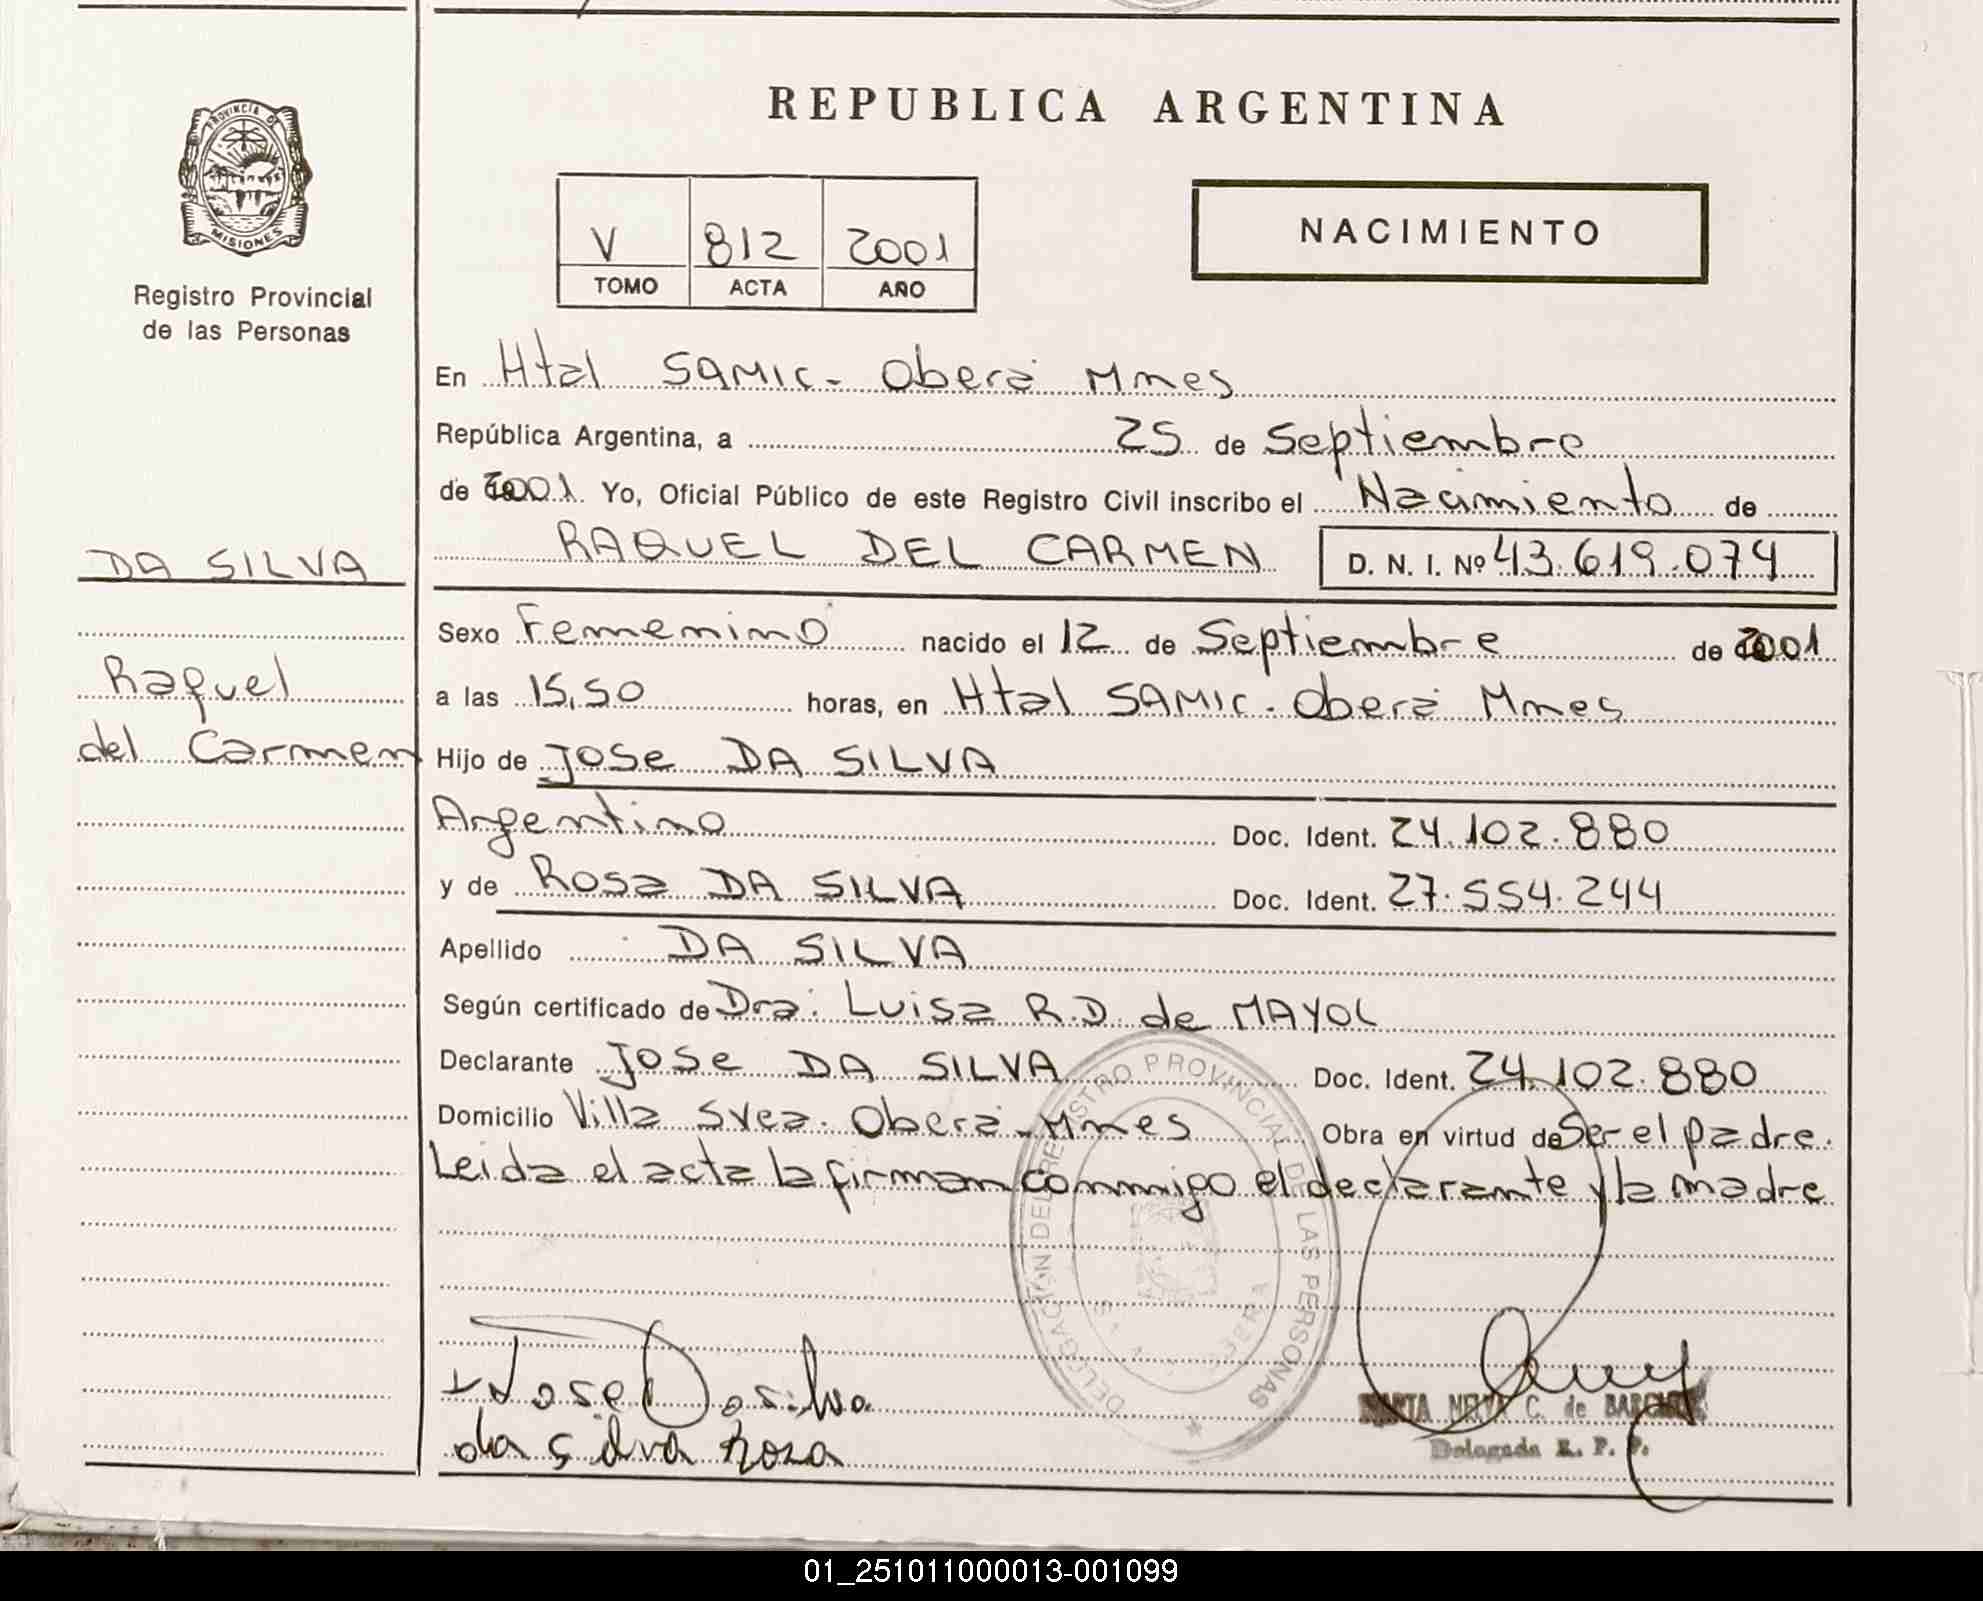 REPUBLICA ARGENTINA
PROVINCIA DE
MISIONES
Registro Provincial
de las Personas
V 812 2001
TOMO ACTA AÑO
NACIMIENTO
En Htal SAMIC - Oberá Mnes
República Argentina, a 25 de Septiembre
de 2001 Yo, Oficial Público de este Registro Civil inscribo el Nacimiento de
RAQUEL DEL CARMEN D. N. I. Nº 43.619.074
DA SILVA
Raquel
del Carmen
Sexo Femenino nacido el 12 de Septiembre de 2001
a las 15,50 horas, en Htal SAMIC - Oberá Mnes
Hijo de Jose DA SILVA
Argentino Doc. Ident. 24.102.880
y de Rosa DA SILVA Doc. Ident. 27.554.244
Apellido DA SILVA
Según certificado de Dra. Luisa R.D. de MAYOL
Declarante Jose DA SILVA Doc. Ident. 24.102.880
Domicilio Villa Svea. Oberá - Mnes Obra en virtud de Ser el padre.
Leida el acta la firman conmigo el declarante y la madre
DELEGACIÓN DEL REGISTRO PROVINCIAL DE LAS PERSONAS
Jose Da silva
da silva Rosa
C. de
Delegada R. P. P.
01_251011000013-001099